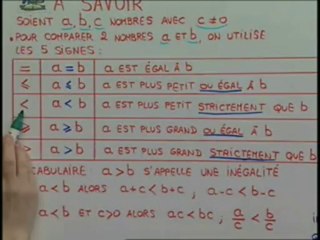 A SAVOIR
SOIENT a, b, c NOMBRES AVEC c≠0
• POUR COMPARER 2 NOMBRES a ET b, ON UTILISE
LES 5 SIGNES :
= a = b a EST ÉGAL À b
≤ a ≤ b a EST PLUS PETIT OU ÉGAL À b
< a < b a EST PLUS PETIT STRICTEMENT QUE b
≥ a ≥ b a EST PLUS GRAND OU ÉGAL À b
> a > b a EST PLUS GRAND STRICTEMENT QUE b
CABULAIRE a>b S'APPELLE UNE INÉGALITÉ
a<b ALORS a+c<b+c, a-c<b-c
a<b ET c>0 ALORS ac<bc, a/c < b/c